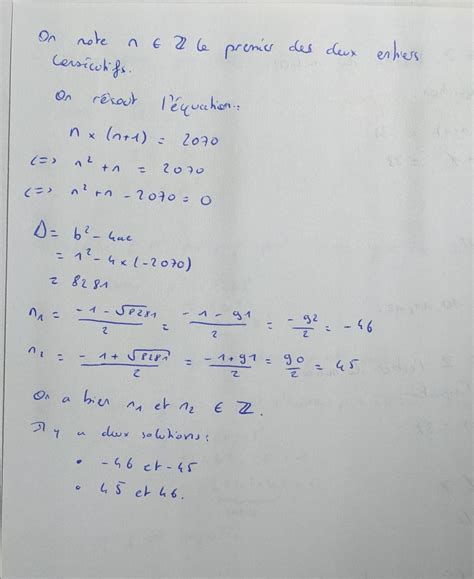 On note n ∈ ℤ le premier des deux entiers
consécutifs.
On résout l'équation:
n × (n+1) = 2070
<=> n² + n = 2070
<=> n² + n - 2070 = 0
Δ = b² - 4ac
= 1² - 4 × (-2070)
= 8281
n₁ = (-1 - √8281)/2 = (-1 - 91)/2 = -92/2 = -46
n₂ = (-1 + √8281)/2 = (-1 + 91)/2 = 90/2 = 45
On a bien n₁ et n₂ ∈ ℤ.
Il y a deux solutions:
• -46 et -45
• 45 et 46.